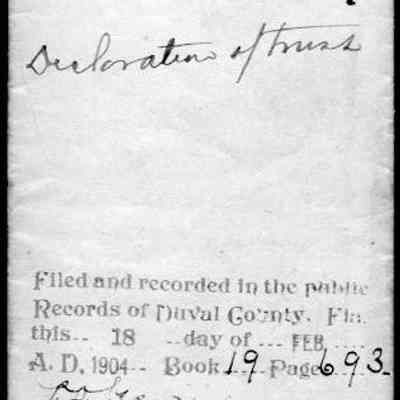 Declaration of trust
Filed and recorded in the public
Records of Duval County, Fla.
this.. 18 ..day of ... FEB. ....
A. D, 1904.. Book 19 Page 693.